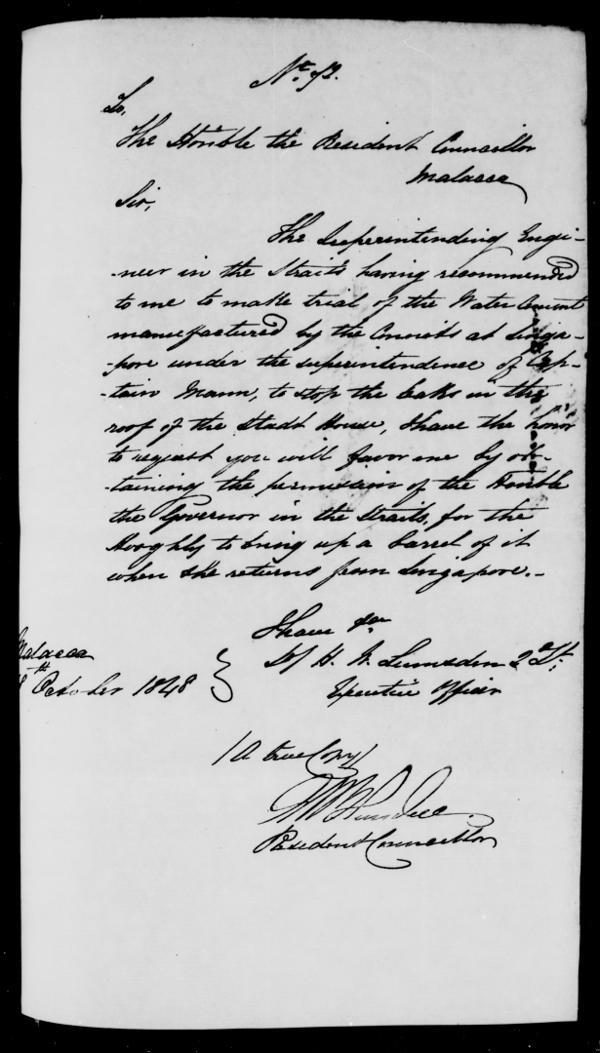 To,
The Honble the Resident Councillor
Malacca
Sir,
The Superintending Engi-
-neer in the Straits having recommended
to me to make trial of the Water Cement
manufactured by the Convicts at Singa-
-pore under the superintendence of Cap-
-tain Mann, to stop the leaks in the
roof of the Stadt House, I have the honor
to request you will favor me by ob-
-taining the permission of the Honble
the Governor in the Straits, for the
Hooghly to bring up a barrel of it
when she returns from Singapore.-
I have &ca
S/ H. Lumsden 2d Lt:
Executive Officer
Malacca
October 1848
/A true Copy/
Resident Councillor